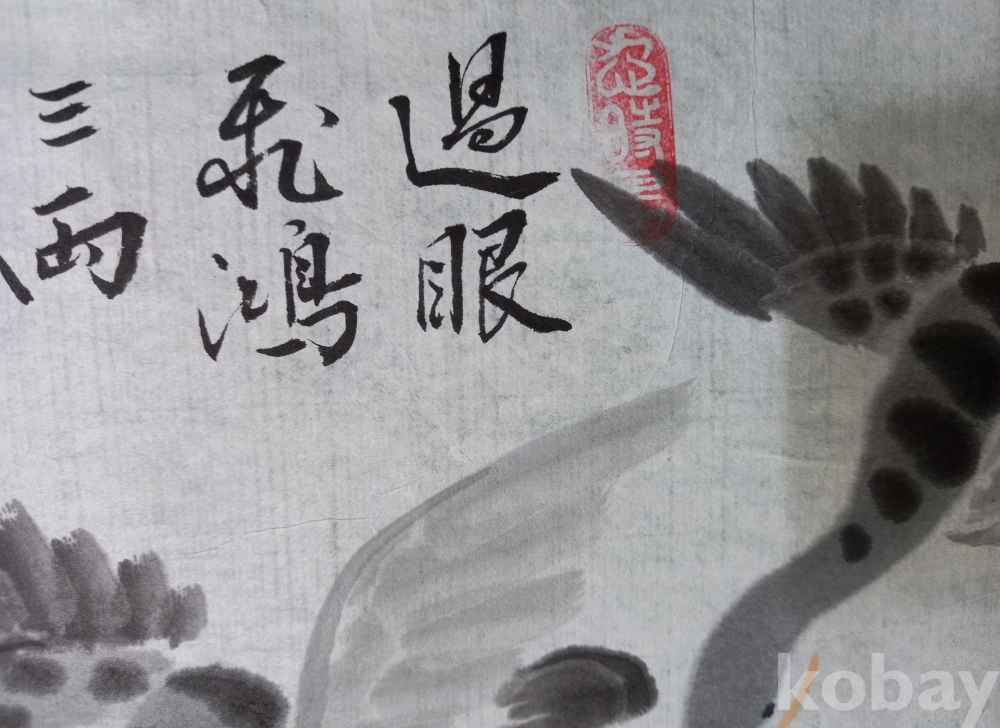 過眼
飛鴻
三兩
kobay